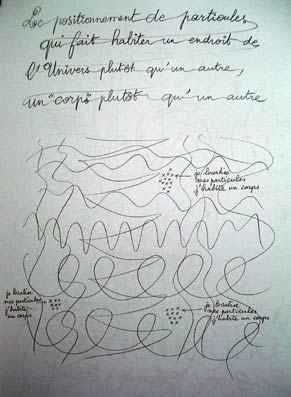 Le positionnement de particules
qui fait habiter un endroit de
l'Univers plutôt qu'un autre,
un "corps" plutôt qu'un autre
je localise
mes particules
j'habite un corps
je localise
mes particules
j'habite
un corps
je localise
mes particules
j'habite un corps